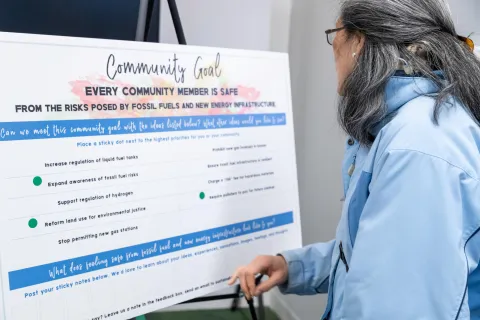 Community Goal
EVERY COMMUNITY MEMBER IS SAFE
FROM THE RISKS POSED BY FOSSIL FUELS AND NEW ENERGY INFRASTRUCTURE.
Can we meet this community goal with the ideas listed below? What other ideas would you like to see?
Place a sticky dot next to the highest priorities for you or your community.
Increase regulation of liquid fuel tanks
Expand awareness of fossil fuel risks
Support regulation of hydrogen
Reform land use for environmental justice
Stop permitting new gas stations
Prohibit new gas hookups in homes
Require polluters to pay for
What does feeling safe from fossil fuel and new energy infrastructure look like to you?
Post your sticky notes below. We'd love to learn about your ideas, experiences,
Leave us a note in the feedback box, send an email to